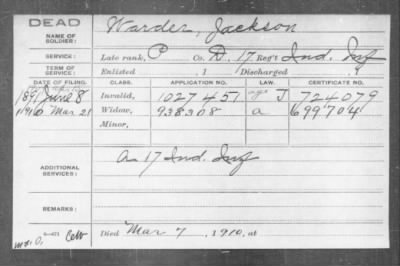 DEAD
NAME OF SOLDIER: Warder, Jackson
SERVICE: Late rank, P Co. D, 17 Reg't Ind. Inf
TERM OF SERVICE: Enlisted , 1 Discharged , 1
DATE OF FILING. CLASS. APPLICATION NO. LAW. CERTIFICATE NO.
1891 June 8 Invalid, 1027451 J 724079
1910 Mar 21 Widow, 938308 a 699704
Minor,
ADDITIONAL SERVICES: a 17 Ind. Inf
REMARKS:
Died Mar 7, 1910, at